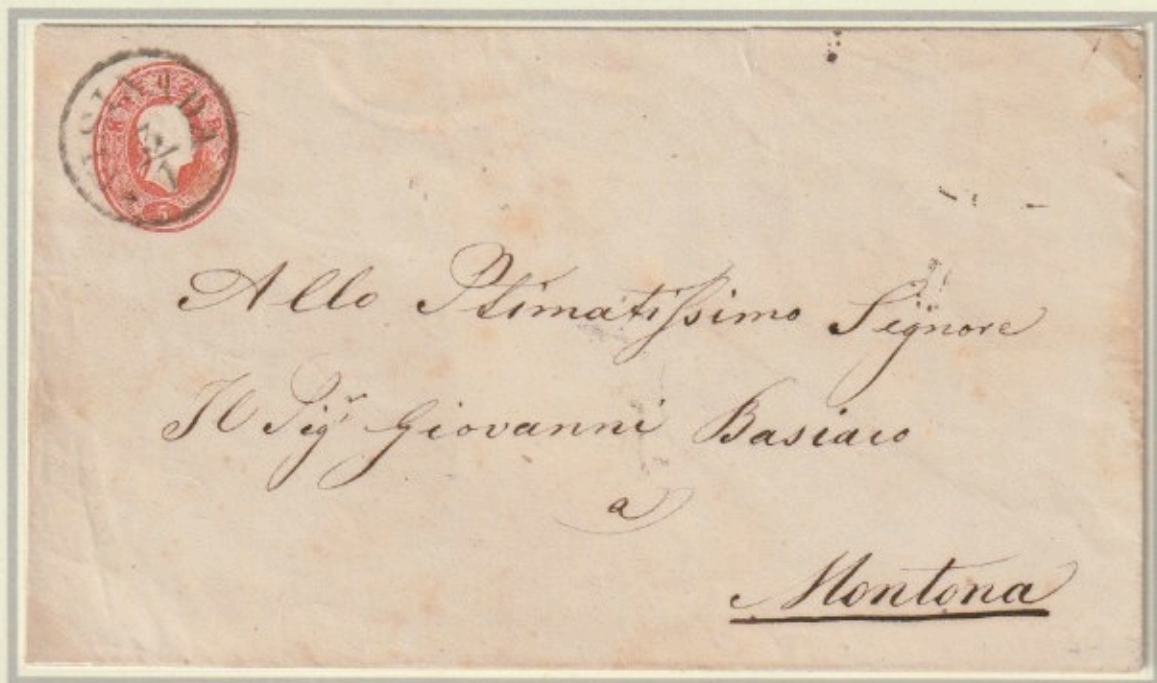 5
Allo Stimatissimo Signore
Il Sigr Giovanni
a
Montona